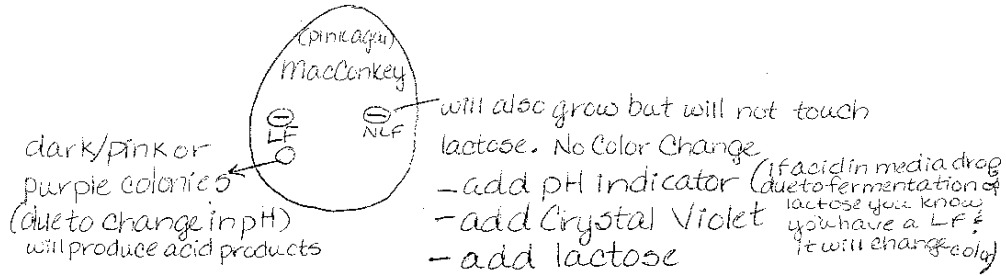 (pink agar)
MacConkey
⊖
LF
⊖
NLF
dark/pink or
purple colonies
(due to change in pH)
will produce acid products
will also grow but will not touch
lactose. No Color Change
- add pH indicator (if acid in media drop
due to fermentation of
lactose you know
you have a LF &
it will change color)
- add Crystal Violet
- add lactose